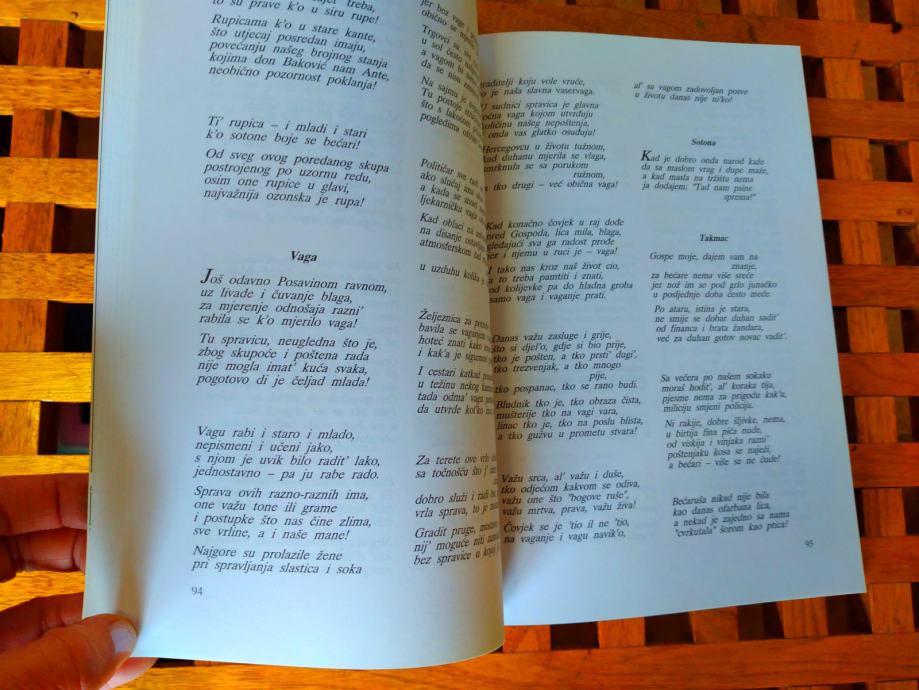 to su prave k'o u siru rupe!
Rupicama k'o u stare kante,
što utjecaj posredan imaju,
povećanju našeg brojnog stanja
kojima don Baković nam Ante,
neobično pozornost poklanja!
Ti' rupica – i mladi i stari
k'o sotone boje se bećari!
Od sveg ovog poredanog skupa
postrojenog po uzornu redu,
osim one rupice u glavi,
najvažnija ozonska je rupa!
Vaga
Još odavno Posavinom ravnom,
uz livade i čuvanje blaga,
za mjerenje odnošaja razni'
rabila se k'o mjerilo vaga!
Tu spravicu, neugledna što je,
zbog skupoće i poštena rada
nije mogla imat' kuća svaka,
pogotovo di je čeljad mlada!
Vagu rabi i staro i mlado,
nepismeni i učeni jako,
s njom je uvik bilo radit' lako,
jednostavno – pa ju rabe rado.
Sprava ovih razno-raznih ima,
one važu tone ili grame
i postupke što nas čine zlima,
sve vrline, a i naše mane!
Najgore su prolazile žene
pri spravljanja slastica i soka
94
jer bez vage
obično se
Trgovci su,
u sol često
a vagom bi
da se nisu
Na sajmu je
Tu postoje
što s lakoćom
pogledima
Političar sve
ako slučaj ima
a kada se stvari
ljekarnička vaga
Kad oblaci na
na disanje
atmosferskom
u uzduhu kolika
Željeznica za
bavila se vaganjem
hoteć znati kako
i kak'a je sigurnost
I cestari katkad
u težinu nekog
tada odma' vagu
da utvrde kol'ko
Za terete ove vrlo
sa točnošću što j'
dobro služi i radi
vrla sprava, to je
Gradit pruge, mostove
nij' moguće niti
bez spravice u kojoj
graditelji koju vole vruće,
to je naša slavna vaservaga.
U sudnici spravica je glavna
točna vaga kojom utvrđuju
količinu našeg nepoštenja,
onda vas glatko osuđuju!
Hercegovcu u životu tužnom,
kad duhanu mjerila se vlaga,
se sa porukom
ružnom,
tko drugi – već obična vaga!
Kad konačno čovjek u raj dođe
pred Gospoda, lica mila, blaga,
gledajući sva ga radost prođe
jer i njemu u ruci je – vaga!
I tako nas kroz naš život cio,
a to treba pamtiti i znati,
od kolijevke pa do hladna groba
samo vaga i vaganje prati.
Danas važu zasluge i grije,
što si djel'o, gdje si bio prije,
tko je pošten, a tko prsti' dugi',
tko trezvenjak, a tko mnogo
pije,
tko pospanac, tko se rano budi.
Bludnik tko je, tko obraza čista,
mušterije tko na vagi vara,
linac tko je, tko na poslu blista,
a tko gužvu u prometu stvara!
Važu srca, al' važu i duše,
tko odjećom kakvom se odiva,
važu one što "bogove ruše",
važu mrtva, prava, važu živa!
Čovjek se je 'tio il ne 'tio,
na vaganje i vagu navik'o,
al' sa vagom zadovoljan posve
u životu danas nije ni'ko!
Sotona
Kad je dobro onda narod kaže
da sa maslom vrag i dupe maže,
a kad masla na tržištu nema
ja dodajem: "Tad nam psine
sprema!"
Takmac
Gospe moje, dajem vam na
znanje,
za bećare nema više sreće
jer nož im se pod grlo junačko
u posljednje doba često meće.
Po ataru, istina je stara,
ne smije se dobar duhan sadit'
od financa i brata žandara,
već za duhan gotov novac vadit'.
Sa večera po našem sokaku
moraš hodit', al' koraka tija,
pjesme nema za prigodu kak'u,
miliciju smjeni policija.
Ni rakije, dobre šljivke, nema,
u birtija fina pića nude,
od viskija i vinjaka razni'
poštenjaku kosa se naježi,
a bećari – više se ne čude!
Bećaruša nikad nije bila
kao danas ofarbana lica,
a nekad je zajedno sa nama
"cvrkutala" šorom kao ptica!
95